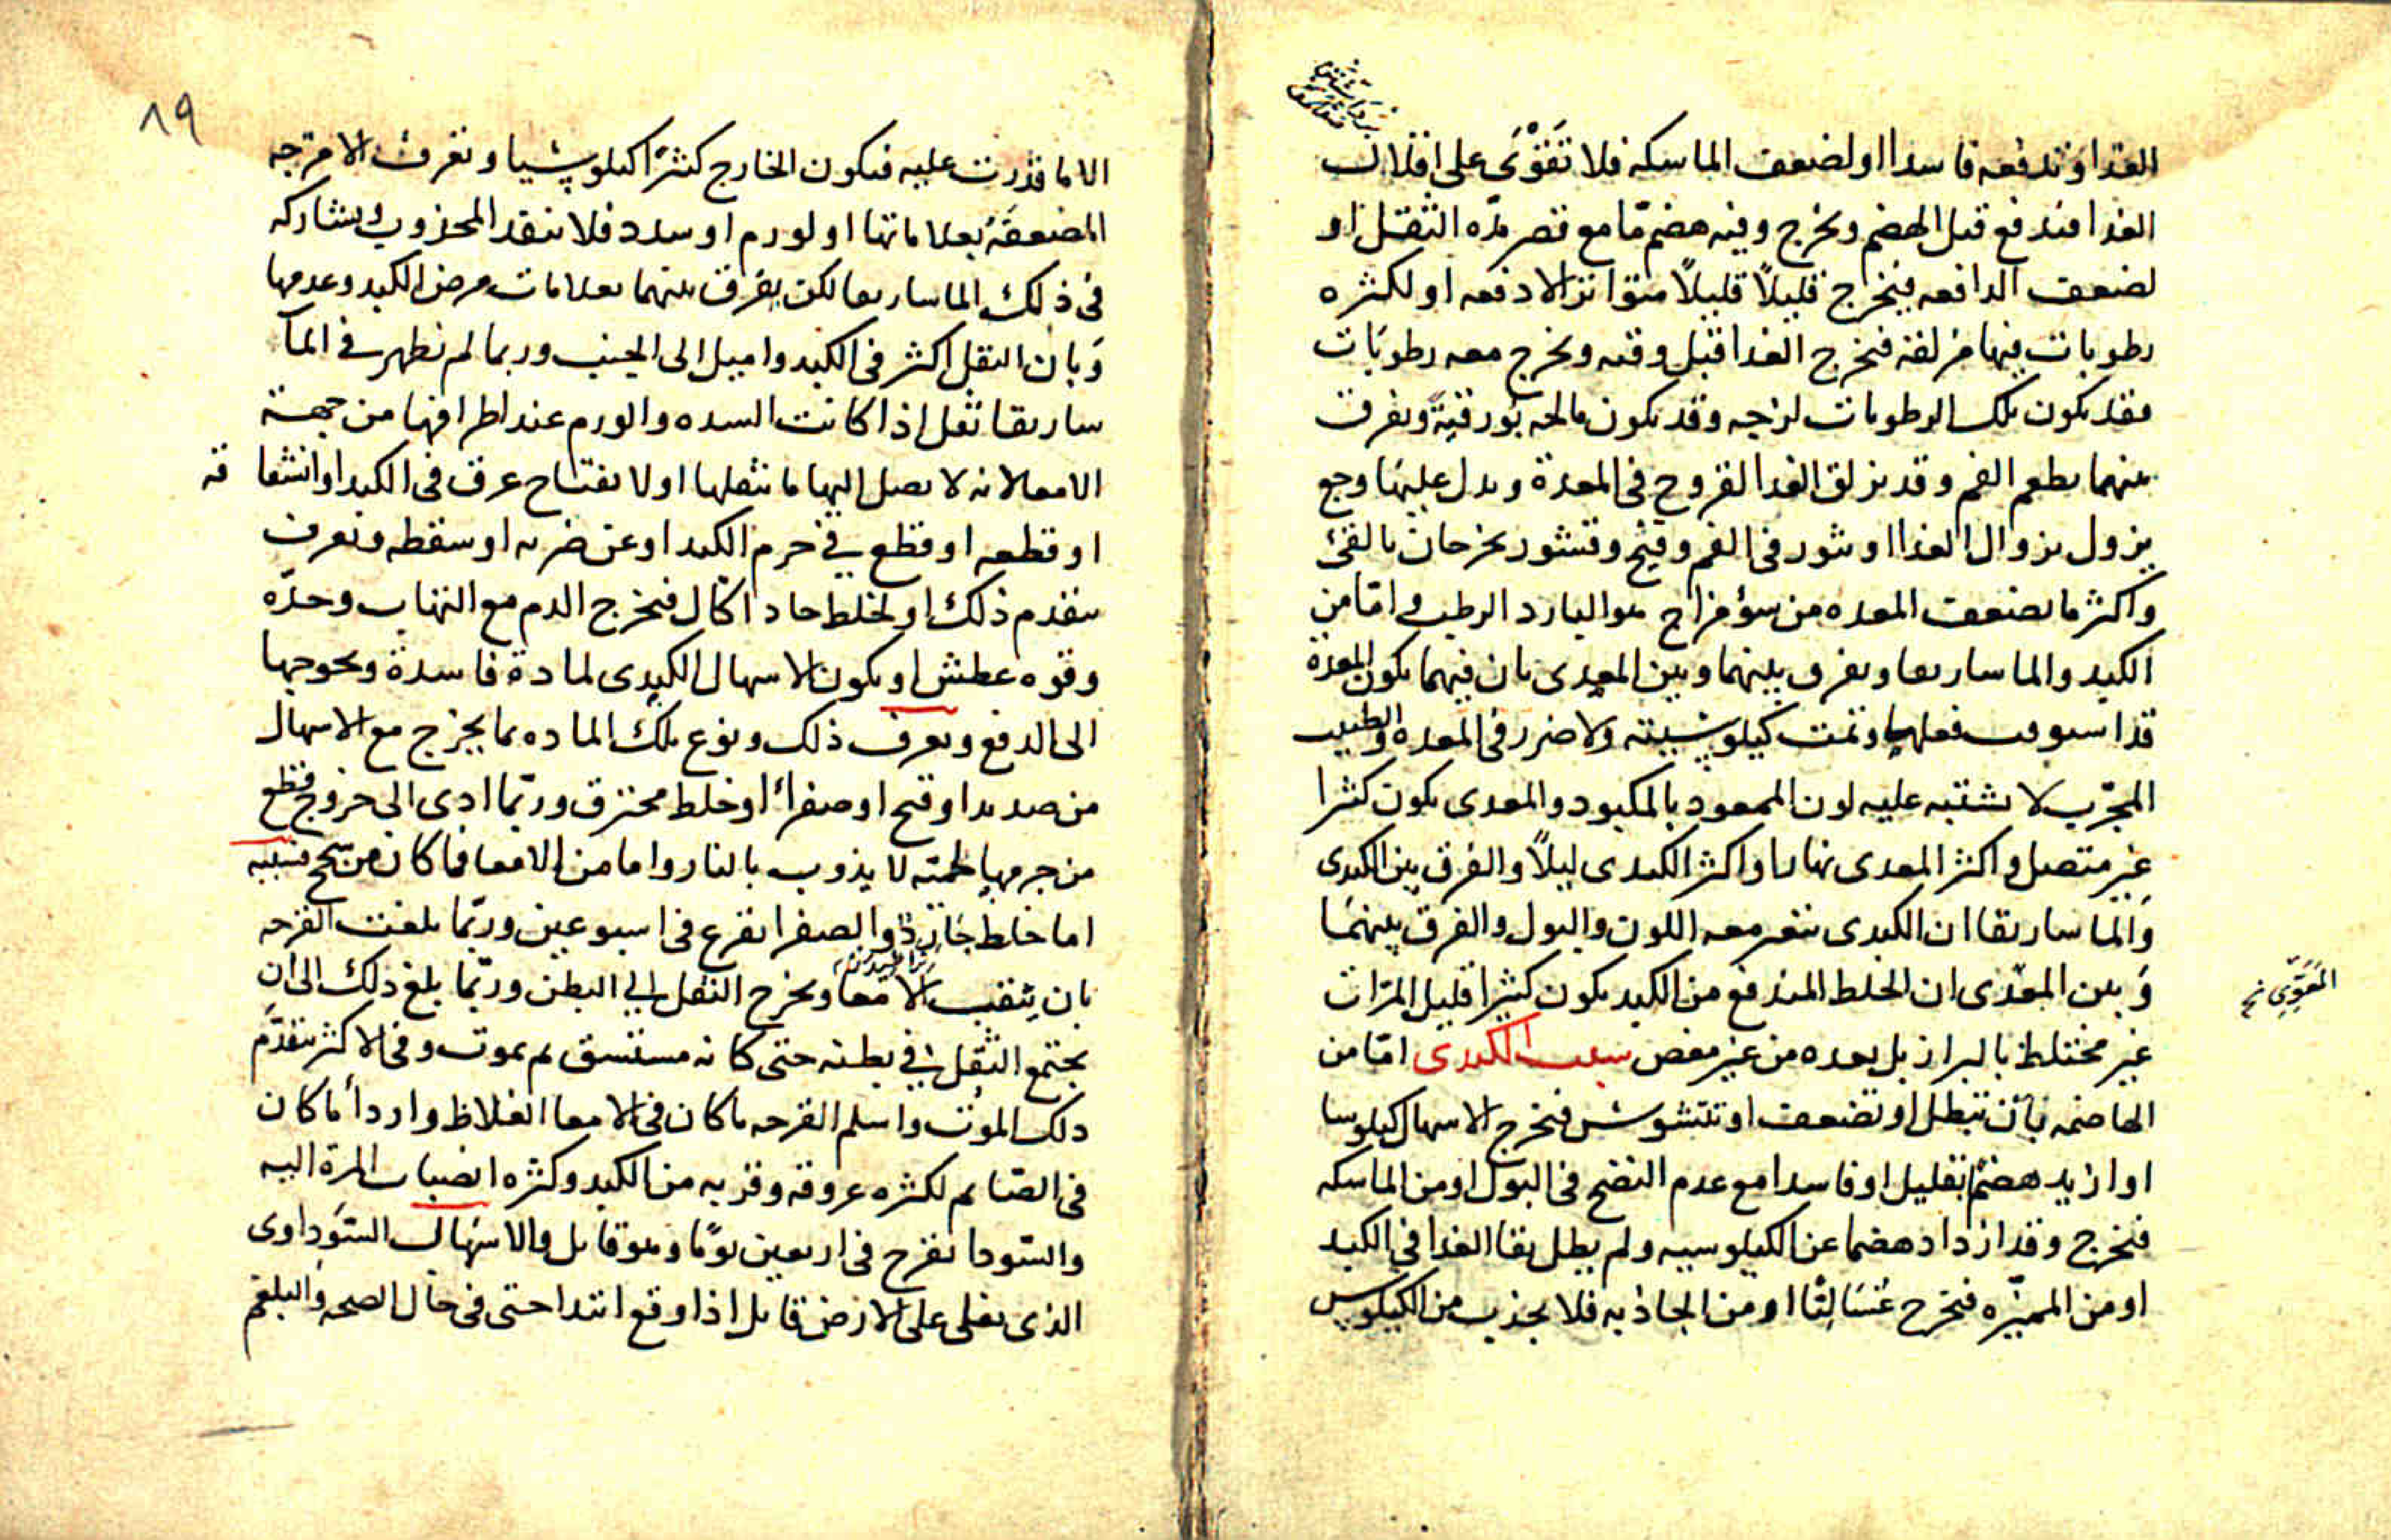 الغذا وتدفعه فاسدا او لضعف الماسكه فلا تقوى على اقلال
الغذا فيندفع قبل الهضم ويخرج وفيه هضم ما مع قصر مده الثقل او
لضعف الدافعه فيخرج قليلاً قليلاً متواتر الا دفعه او لكثره
رطوبات فيها مزلقه فيخرج الغذا قبل وقته ويخرج معه رطوبات
فقد يكون تلك الرطوبات لزجه وقد يكون مالحه بورقيةً ويفرق
بينهما بطعم الفم وقد يزلق الغذا القروح في المعدة ويدل عليها وجع
يزول بزوال الغذا او بثور في الفم وقيح وقشور يخرجان بالقئ
واكثر ما يضعف المعده من سؤ مزاج هو البارد الرطب واما من
الكبد والماساريقا ويفرق بينهما وبين المعدى بان فيهما يكون المعدة
قد استوفت فعلها وتمت كيلوسيته ولا ضرر في المعده والطبيب
المجرّب لا يشتبه عليه لون الممعود بالمكبود والمعدى يكون كثيرا
غير متصل واكثر المعدى نهارا واكثر الكبدى ليلاً والفرق بين الكبدى
والماساريقا ان الكبدى يتغير معه اللون والبول والفرق بينهما
وبين المعدى ان الخلط المندفع من الكبد يكون كثيرا قليل المرات
المعوي نخ
غير مختلط بالبراز بل بعده من غير مغص سبب الكبدى امّا من
الهاضمه بان تبطل او تضعف او تتشوش فيخرج الاسهال كيلوسا
او ازيد هضمًا بقليل او فاسدا مع عدم النضج في البول او من الماسكه
فيخرج وقد ازداد هضما عن الكيلوسيه ولم يطل بقا الغذا في الكبد
او من المميزه فيخرج غسالبّا او من الجاذبه فلا يجذب من الكيلوس
٨٩
الا ما قدرت عليه فيكون الخارج كثيرًا كيلوسيا ويعرف الامزجه
المضعفة بعلاماتها او لورم او سدد فلا ينفد المجذوب ويشاركه
في ذلك الماساريقا لكن يفرق بينهما بعلامات مرض الكبد وعدمها
وبان الثقل اكثر في الكبد واميل الى الجنب وربما لم يظهر في الما
ساريقا ثقل اذا كانت السده والورم عند اطرافها من جهة
الامعا لانه لا يصل اليها ما يثقلها او لانفتاح عرق في الكبد او انشقا قه
او قطعه او قطع في جرم الكبد او عن ضربه او سقطه ويعرف
بتقدم ذلك او لخلط حاد اكال فيخرج الدم مع التهاب وحدّه
وقوه عطش او يكون الاسهال الكبدى لمادة فاسدة ويحوجها
الى الدفع ويعرف ذلك ونوع تلك الماده بما يخرج مع الاسهال
من صديد او قيح او صفرا او خلط محترق وربّما ادى الى خروج قطع
من جرمها لحميّه لا يذوب بالنار واما من الامعا فما كان من سحج فسببه
اما خلط جارد والصفرا يقرح في اسبوعين وربّما بلغت القرحه
بان يثقب الامعا ويخرج الثفل الى البطن وربّما بلغ ذلك الى ان
يجتمع الثفل في بطنه حتى كانه مستسق ثم يموت وفي الاكثر يتقدّم
ذلك الموت واسلم القرحه ما كان في الامعا الغلاظ واردأ ما كان
في الصّايم لكثره عروقه وقربه من الكبد وكثره انصباب المرة اليه
والسّودا تقرح في اربعين يومًا وهو قاتل والاسهال السّوداوى
الذى يغلى على الارض قاتل اذا وقع ابتدا حتى في حال الصحه والبلغم